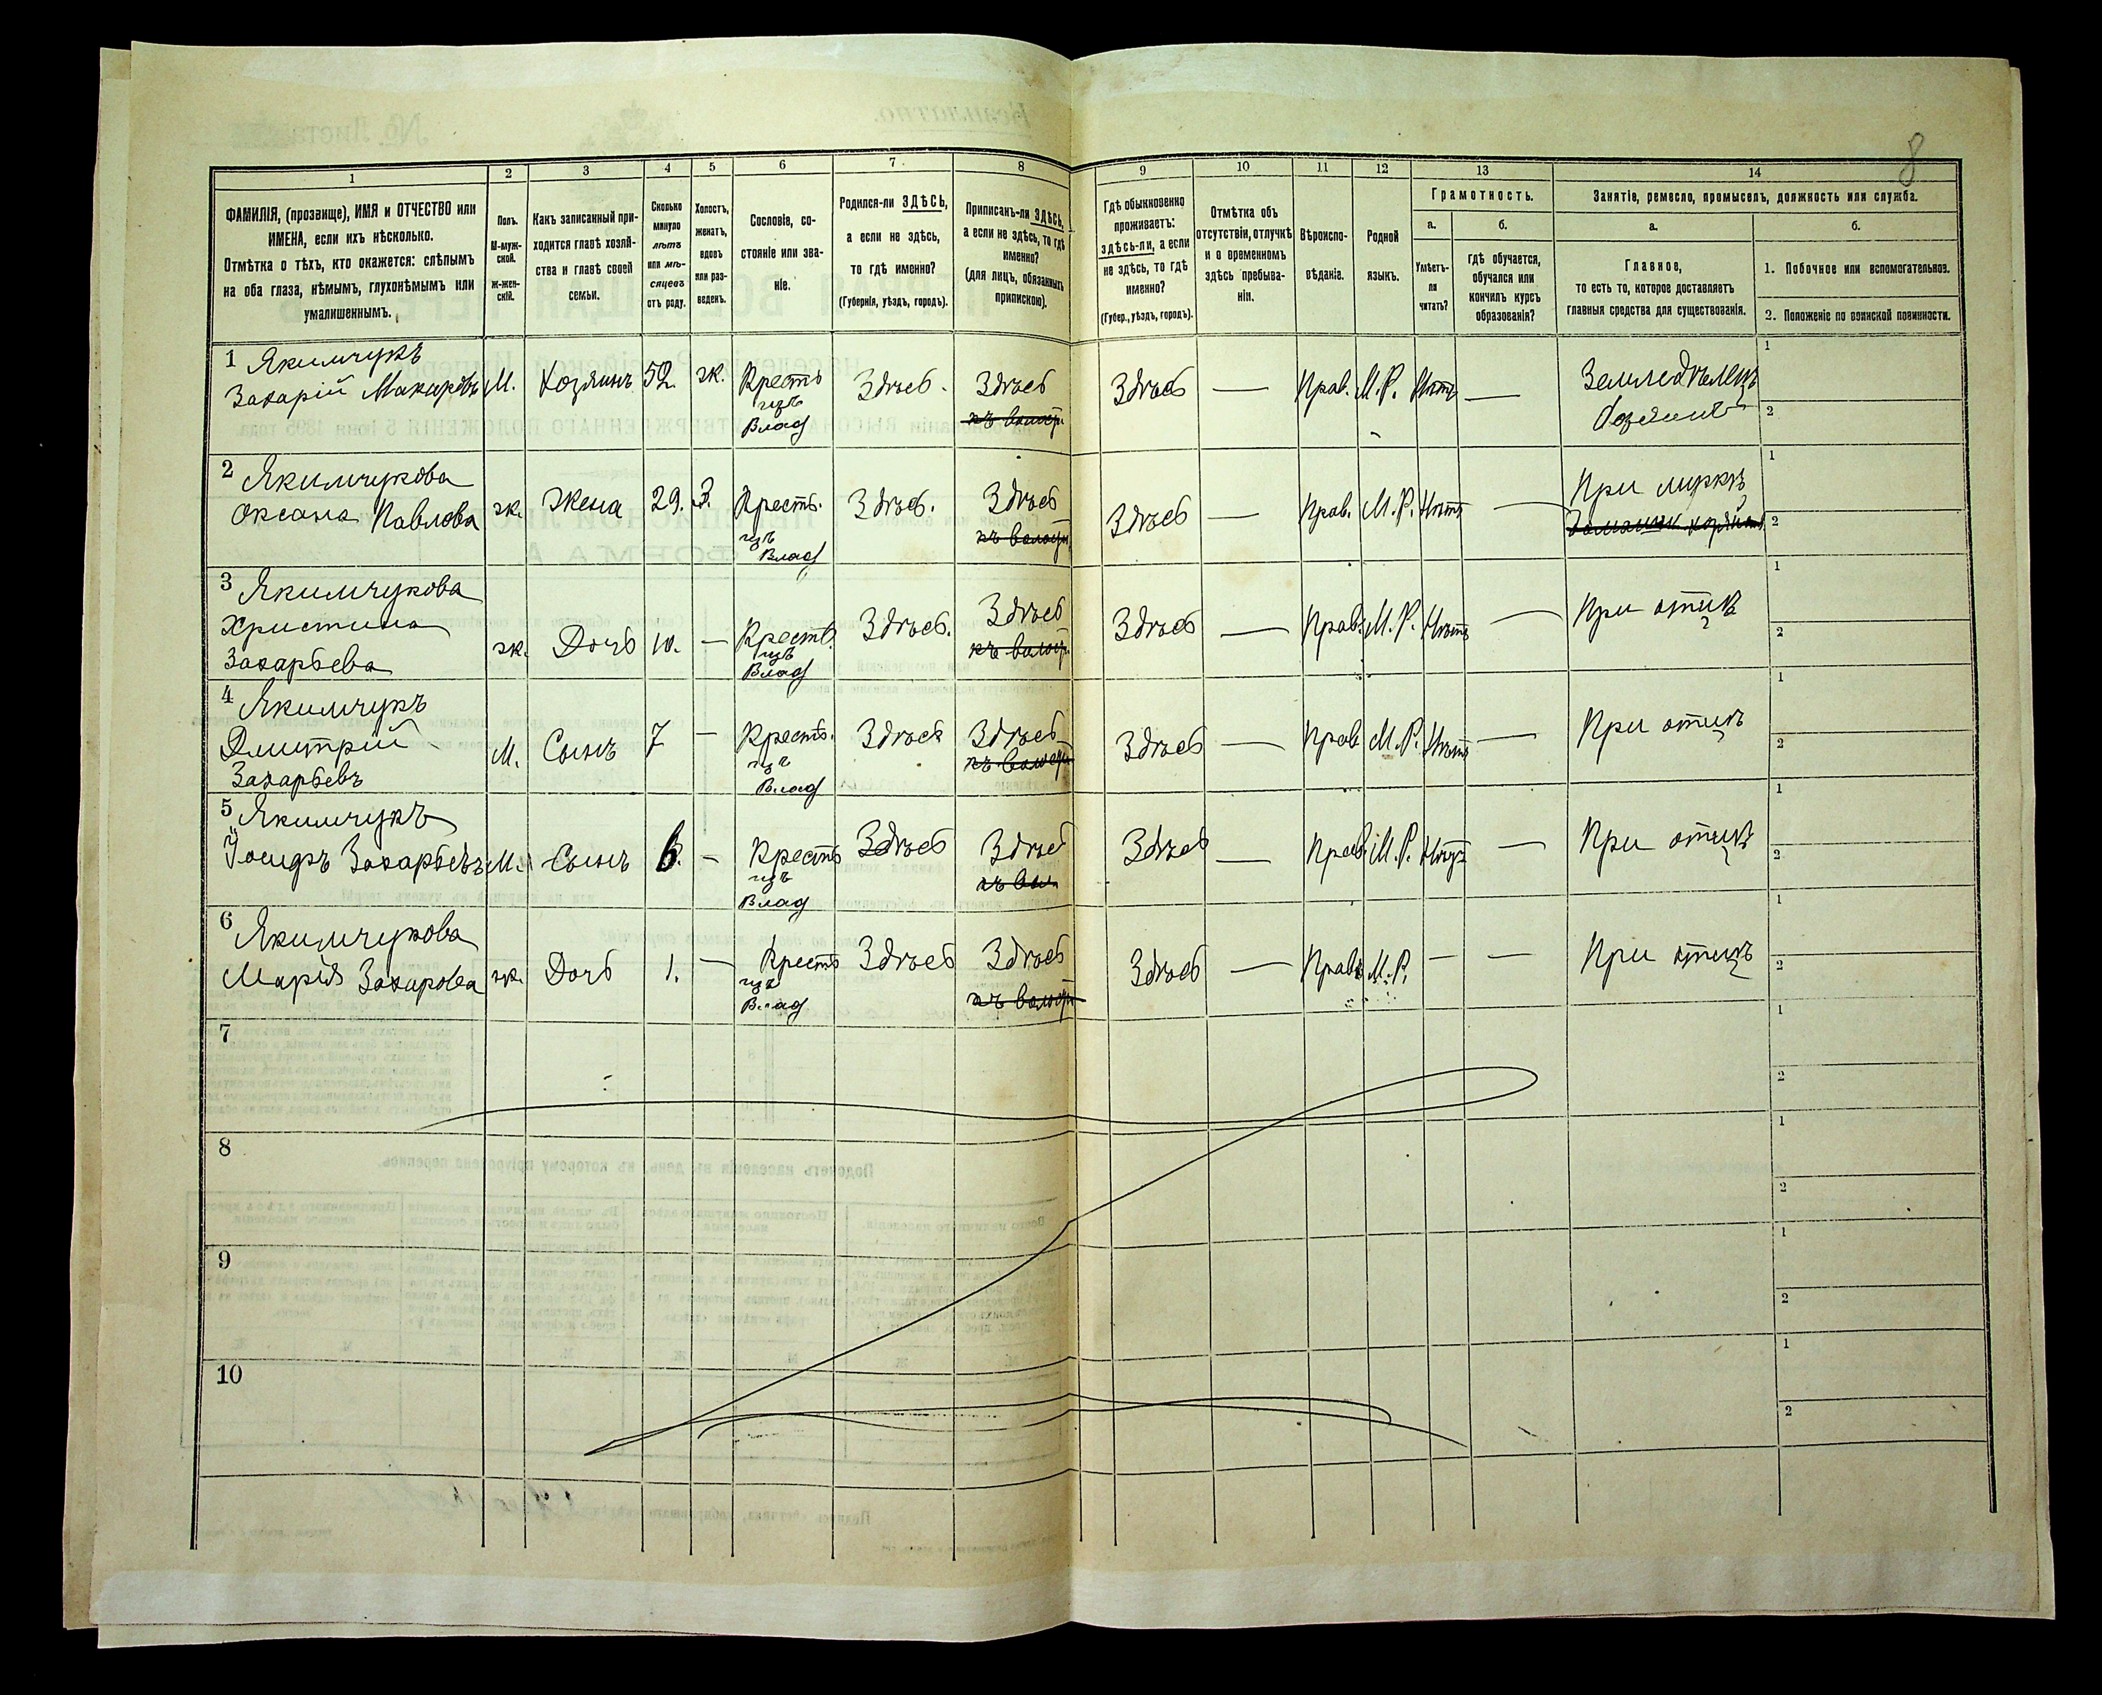 8
1 2 3 4 5 6 7 8 9 10 11 12 13 14
ФАМИЛІЯ, (прозвище), ИМЯ и ОТЧЕСТВО или
ИМЕНА, если ихъ нѣсколько.
Отмѣтка о тѣхъ, кто окажется: слѣпымъ
на оба глаза, нѣмымъ, глухонѣмымъ или
умалишеннымъ.
Полъ.
М-муж-
ской.
Ж-жен-
скій.
Какъ записанный при-
ходится главѣ хозяй-
ства и главѣ своей
семьи.
Сколько
минуло
лѣтъ
или мѣ-
сяцевъ
отъ роду.
Холостъ,
женатъ,
вдовъ
или раз-
веденъ.
Сословіе, со-
стояніе или зва-
ніе.
Родился-ли ЗДѢСЬ,
а если не здѣсь,
то гдѣ именно?
(Губернія, уѣздъ, городъ).
Приписанъ-ли ЗДѢСЬ,
а если не здѣсь, то гдѣ
именно?
(для лицъ, обязанныхъ
припискою).
Гдѣ обыкновенно
проживаетъ:
здѣсь-ли, а если
не здѣсь, то гдѣ
именно?
(Губер., уѣздъ, городъ).
Отмѣтка объ
отсутствіи, отлучкѣ
и о временномъ
здѣсь пребыва-
ніи.
Вѣроиспо-
вѣданіе.
Родной
языкъ.
Грамотность.
а.
Умѣетъ-
ли
читать?
б.
гдѣ обучается,
обучался или
кончилъ курсъ
образованія?
Занятіе, ремесло, промыселъ, должность или служба.
а.
Главное,
то есть то, которое доставляетъ
главныя средства для существованія.
б.
1. Побочное или вспомогательное.
2. Положеніе по воинской повинности.
1 Якимчукъ
Захарій Макаровъ М. Хозяинъ 52. ж. Крестъ Здѣсь. Здѣсь Здѣсь — Прав. М.Р. Нѣтъ — Земледѣлецъ
изъ
Влад
1
2
2 Якимчукова
Оксана Павлова ж. Жена 29. З. Крестъ. Здѣсь. Здѣсь Здѣсь — Прав. М.Р. Нѣтъ — При мужѣ
изъ
Влад
1
2
3 Якимчукова
Христина
Захарьева ж. Дочь 10. — Крестъ. Здѣсь. Здѣсь Здѣсь — Прав. М.Р. Нѣтъ — При отцѣ
изъ
Влад
1
2
4 Якимчукъ
Дмитрій
Захарьевъ М. Сынъ 7 — Крестъ. Здѣсь Здѣсь Здѣсь — Прав М.Р. Нѣтъ — При отцѣ
изъ
Влад
1
2
5 Якимчукъ
Іосифъ Захарьевъ М. Сынъ 6. — Крестъ Здѣсь Здѣсь Здѣсь — Прав М.Р. Нѣтъ — При отцѣ
изъ
Влад
1
2
6 Якимчукова
Марія Захарова ж. Дочь 1. — Крестъ Здѣсь Здѣсь Здѣсь — Прав М.Р. — — При отцѣ
изъ
Влад
1
2
7
1
2
8
1
2
9
1
2
10
1
2